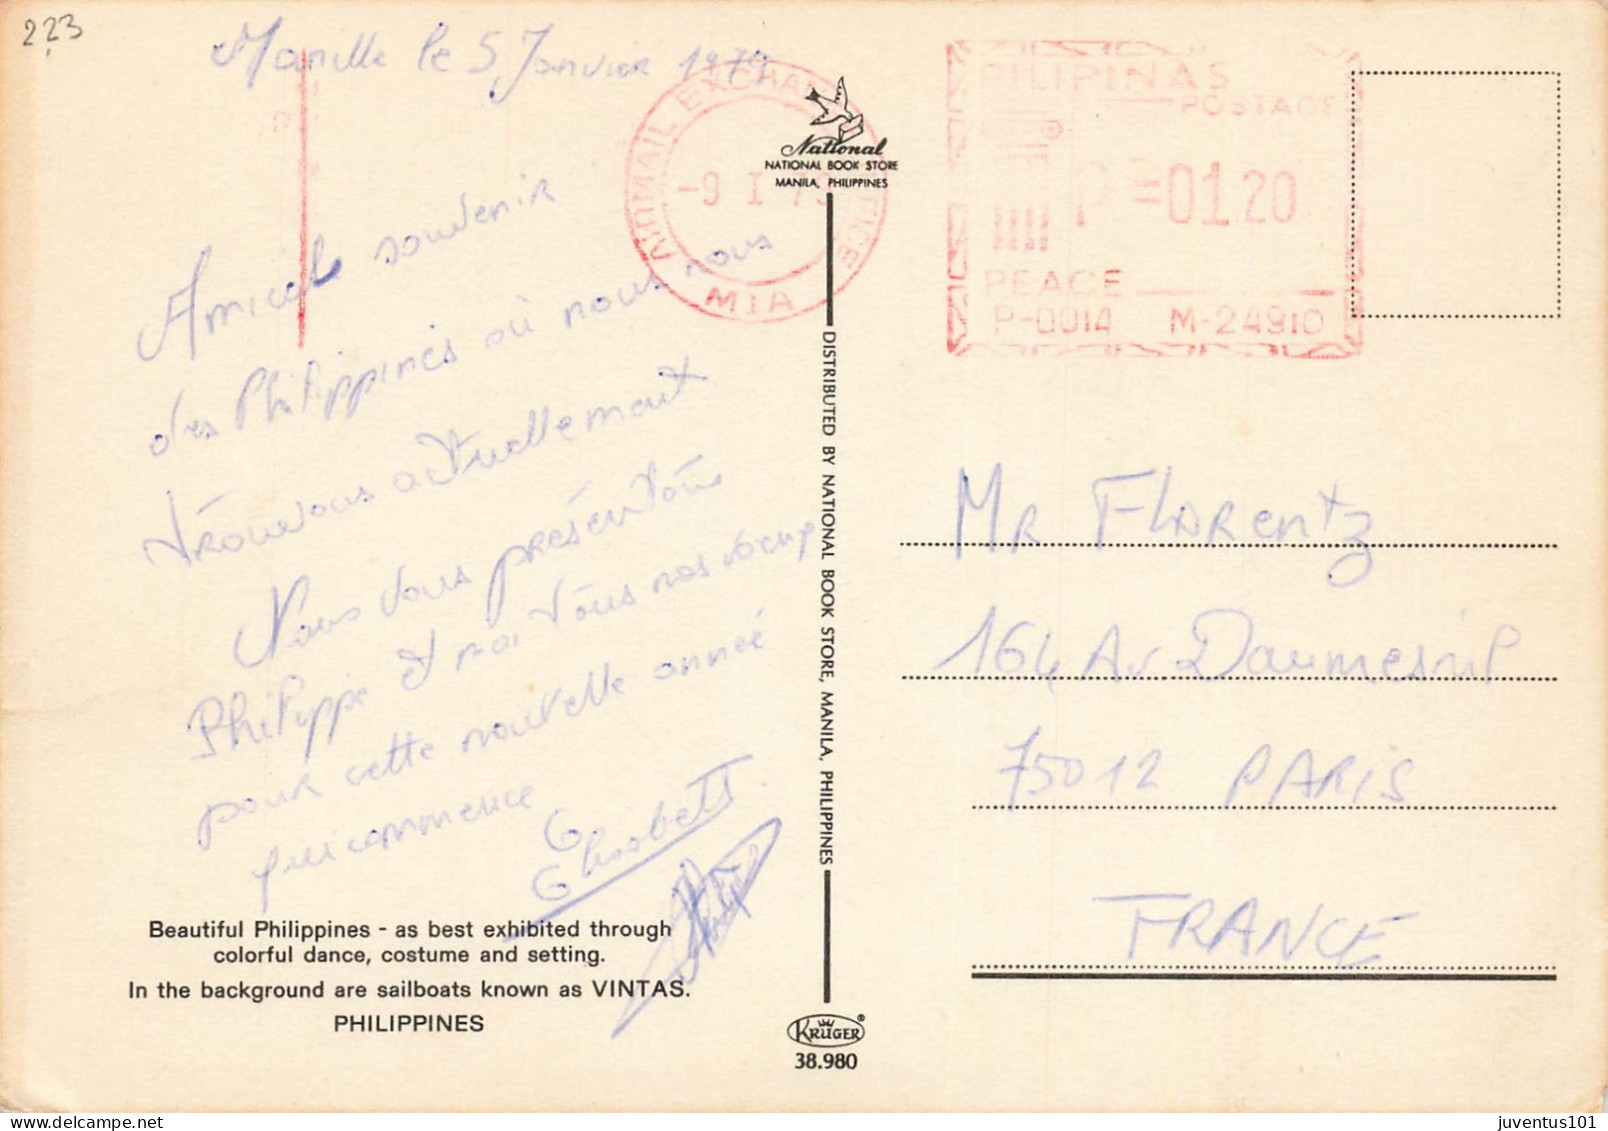 223
Manille le 5 Janvier 1979
Amical souvenir
des Philippines où nous nous
trouvons actuellement
Nous vous présentons
Philippe et moi tous nos vœux
pour cette nouvelle année
qui commence
Elisabett
Beautiful Philippines - as best exhibited through
colorful dance, costume and setting.
In the background are sailboats known as VINTAS.
PHILIPPINES
AIRMAIL EXCHANGE OFFICE
-9 I 79
MIA
National
NATIONAL BOOK STORE
MANILA, PHILIPPINES
DISTRIBUTED BY NATIONAL BOOK STORE, MANILA, PHILIPPINES
KRÜGER®
38.980
PILIPINAS
POSTAGE
P=01.20
PEACE
P-0014 M-24910
Mr Florentz
164 Av Daumesnil
75012 PARIS
FRANCE
juventus101